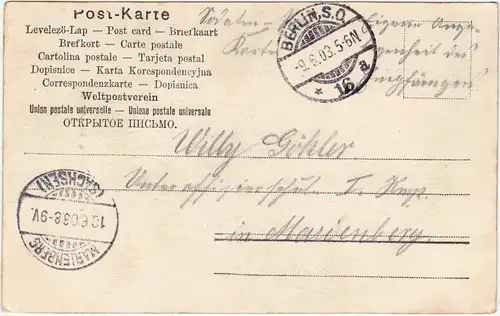 Post-Karte
Levelező-Lap — Post card — Briefkaart
Brefkort — Carte postale
Cartolina postale — Tarjeta postal
Dopisnice — Karta Korespondencyjna
Correspondenzkarte — Dopisnica
Weltpostverein
Union postale universelle — Unione postale universale
ОТКРЫТОЕ ПИСЬМО.
Soldaten- eigene Ange-
Karte legenheit des
Empfängers
BERLIN, S.O.
-9.6.03.5-6N
* 16 a
Willy Göhler
Unteroffizierschul. I. Komp.
in Marienberg.
(SACHSEN)
10.6.03.8-9V.
MARIENBERG